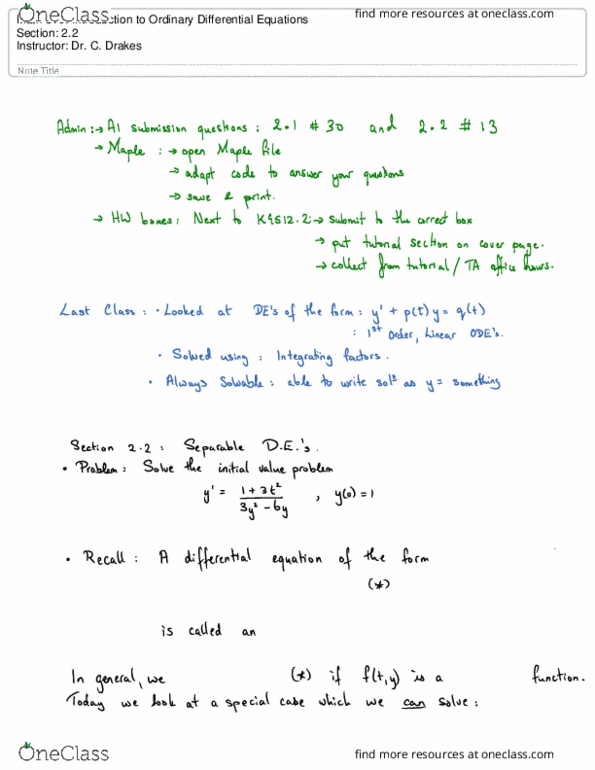 OneClass find more resources at oneclass.com
Introduction to Ordinary Differential Equations
Section: 2.2
Instructor: Dr. C. Drakes
Note Title
Admin: → A1 submission questions : 2.1 # 30 and 2.2 # 13
→ Maple : → open Maple file
→ adapt code to answer your questions
→ save & print.
→ HW boxes: Next to K9612.2: → submit to the correct box
→ put tutorial section on cover page.
→ collect from tutorial / TA office hours.
Last Class : • Looked at DE's of the form : y' + p(t)y = q(t)
: 1st Order, Linear ODE's.
• Solved using : Integrating factors.
• Always Solvable : able to write solⁿ as y = something
Section 2.2 : Separable D.E.'s.
• Problem : Solve the initial value problem
y' = (1 + 3t²)/(3y² - 6y) , y(0) = 1
• Recall : A differential equation of the form
(*)
is called an
In general, we (*) if f(t,y) is a function.
Today we look at a special case which we can solve :
OneClass find more resources at oneclass.com